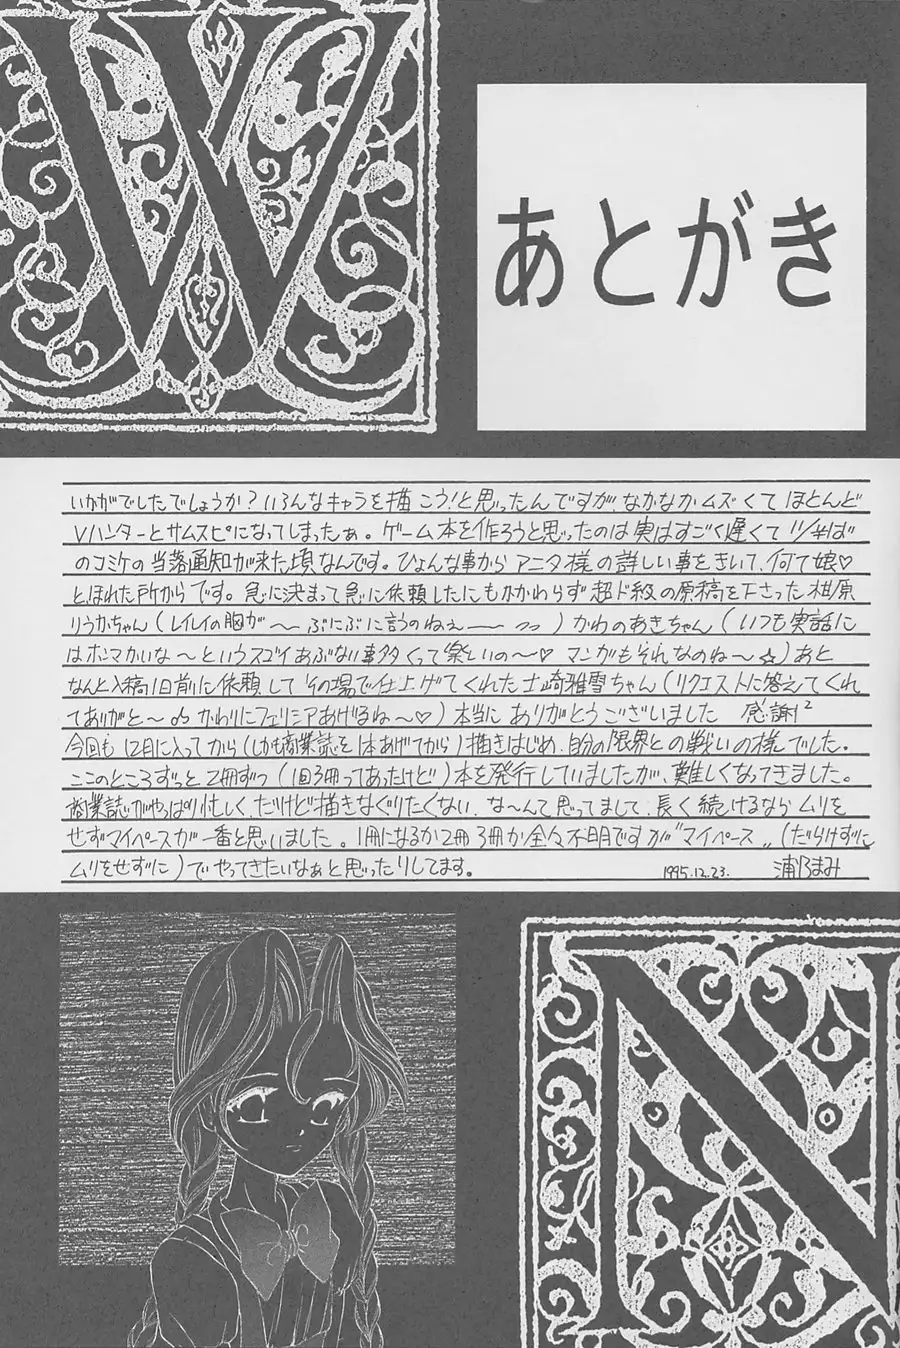 あとがき
いかがでしたでしょうか？いろんなキャラを描こう！と思ったんですがなかなかムズくてほとんど
Vハンターとサムスピになってしまったぁ。ゲーム本を作ろうと思ったのは実はすごく遅くて11/半ば
のコミケの当落通知が来た頃なんです。ひょんな事からアニタ様の詳しい事をきいて、何て娘♡
とほれた所からです。急に決まって急に依頼したにもかかわらず超ド級の原稿を下さった椹原
りうかちゃん（レイレイの胸が〜ぷにぷに言うのねぇ〜）かわのあきちゃん（いつも実話に
はホンマかいな〜というスゴイあぶない事多くって楽しいの〜♡マンガもそれなのね〜☆）あと
なんと入稿1日前に依頼してその場で仕上げてくれた士崎雅雪ちゃん（リクエストに答えてくれ
てありがと〜♪かわりにフェリシアあげるね〜♡）本当にありがとうございました 感謝²
今回も12月に入ってから（しかも商業誌を1本あげてから）描きはじめ、自分の限界との戦いの様でした。
ここのところずっと2冊ずつ（1回3冊ってあったけど）本を発行していましたが、難しくなってきました。
商業誌がやっぱり忙しく、だけど描きなぐりたくない、な〜んて思ってまして、長く続けるならムリを
せずマイペースが一番と思いました。1冊になるか2冊3冊か全々不明ですが"マイペース„（だらけずに
ムリをせずに）でやってきたいなぁと思ったりしてます。 1995.12.23. 浦乃まみ